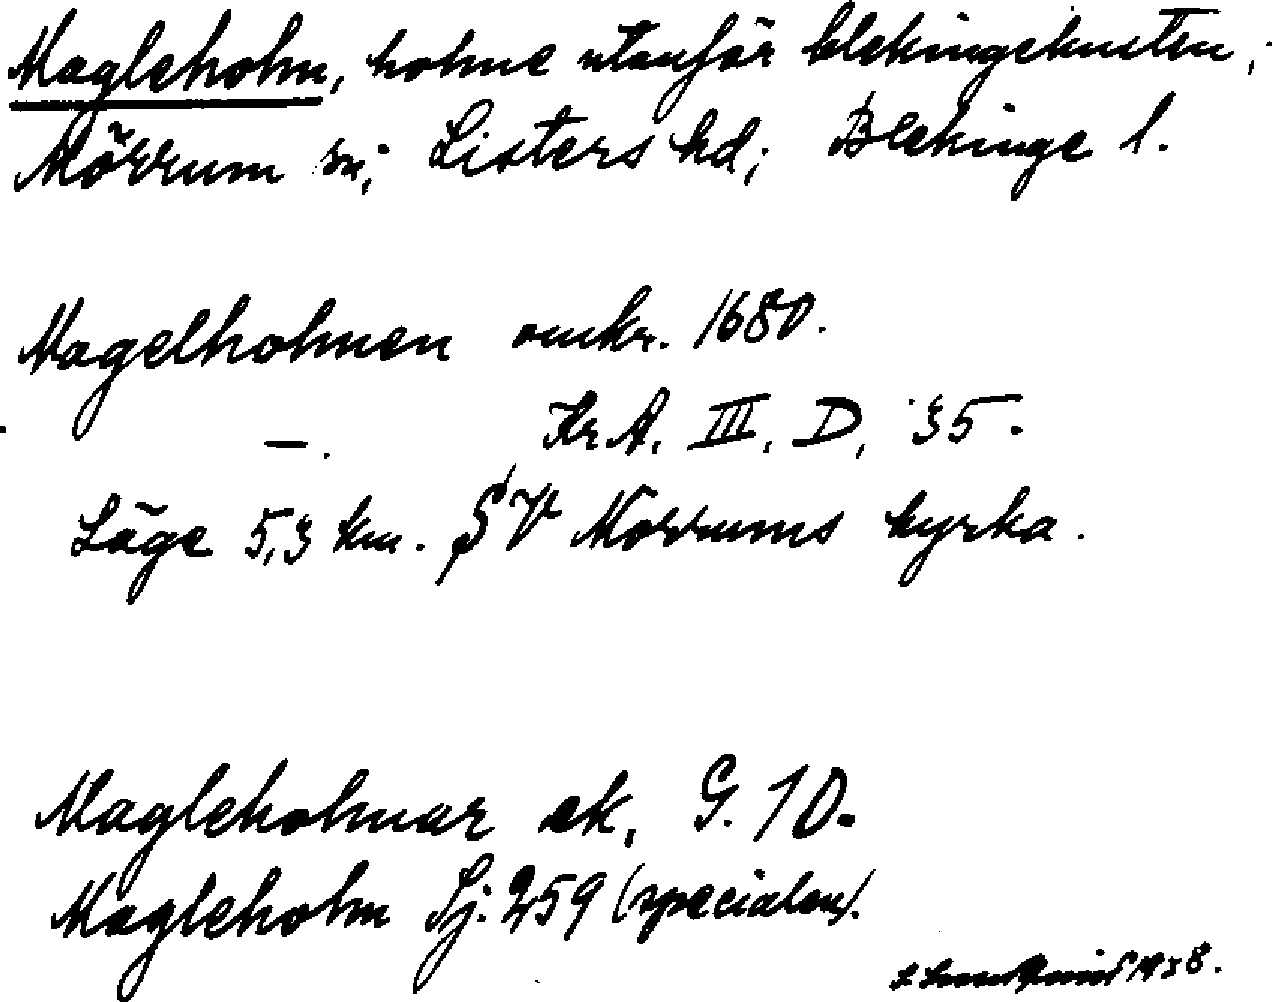 Magleholm, holme utanför blekingekusten,
Mörrum sn; Listers hd; Blekinge l.
Magelholmen omkr. 1680.
— . Kr A. III, D, 35.
Läge 5,3 km. SV Mörrums kyrka.
Magleholmar ek, G. 10.
Magleholm Sj. 259 (specialen).
1938.